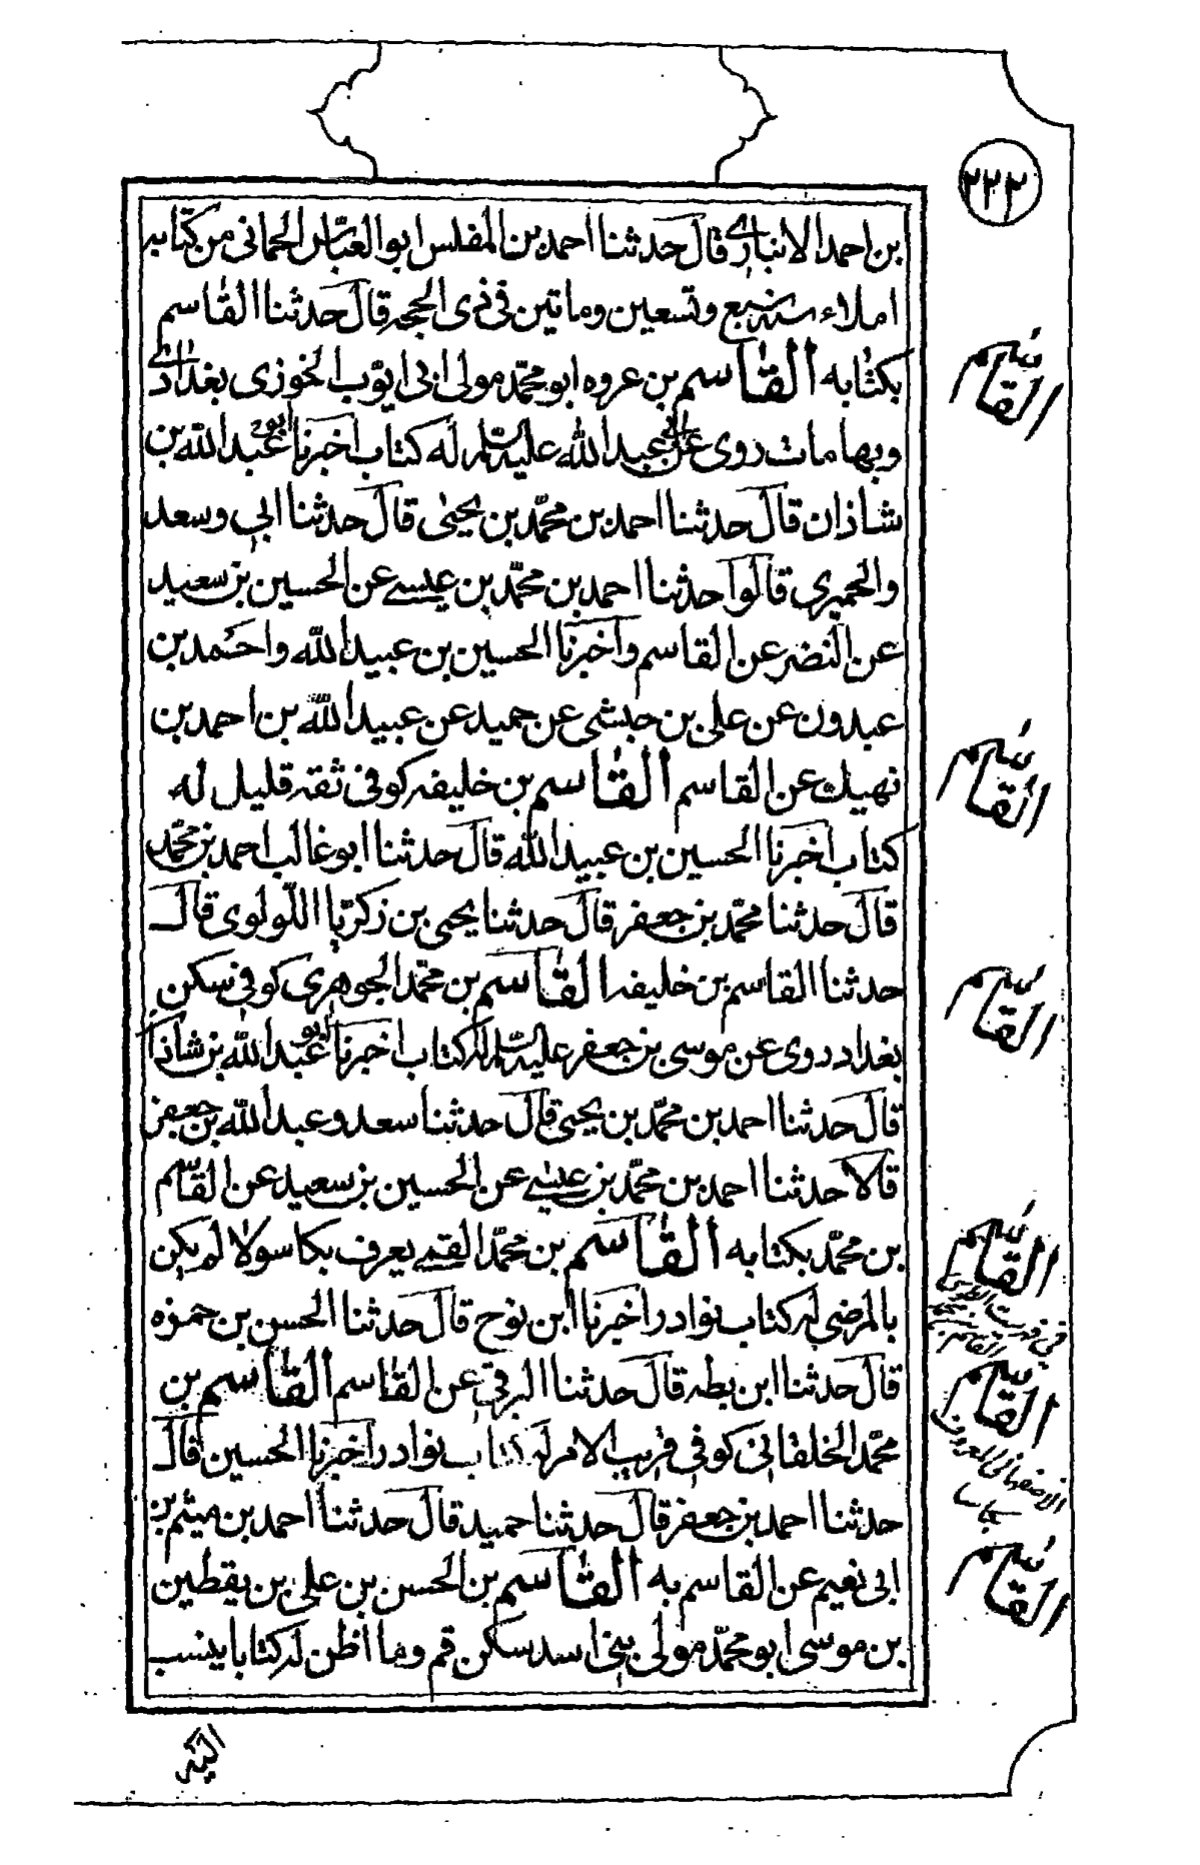 ٢٢٣
بن احمد الانباری قال حدثنا احمد بن المفلس ابو العباس الحمانی من کتابه
املاء سنه سبع وتسعین وماتین فی ذی الحجه قال حدثنا القاسم
بکتابه القاسم بن عروه ابو محمّد مولی ابی ایوّب الخوزی بغدادی
وبها مات روی عن ابی عبد الله علیه السلم له کتاب اخبرنا ابو عبد الله بن
شاذان قال حدثنا احمد بن محمّد بن یحیی قال حدثنا ابی وسعد
والحمیری قالوا حدثنا احمد بن محمّد بن عیسے عن الحسین بن سعید
عن النضر عن القاسم واخبرنا الحسین بن عبید الله واحمد بن
عبدون عن علی بن حبشی عن حمید عن عبید الله بن احمد بن
نهیك عن القاسم القاسم بن خلیفه کوفی ثقه قلیل له
کتاب اخبرنا الحسین بن عبید الله قال حدثنا ابو غالب احمد بن محمّد
قال حدثنا محمّد بن جعفر قال حدثنا یحیی بن زکریّا اللّولوی قال
حدثنا القاسم بن خلیفه القاسم بن محمّد الجوهری کوفی سکن
بغداد روی عن موسی بن جعفر علیه السلم له کتاب اخبرنا ابو عبد الله بن شاذا
قال حدثنا احمد بن محمّد بن یحیی قال حدثنا سعد وعبد الله بن جعفر
قالا حدثنا احمد بن محمّد بن عیسے عن الحسین بن سعید عن القاسم
بن محمّد بکتابه القاسم بن محمّد القمے یعرف بکاسولا لم یکن
بالمرضی له کتاب نوادر اخبرنا ابن نوح قال حدثنا الحسن بن حمزه
قال حدثنا ابن بطه قال حدثنا البرقی عن القاسم القاسم بن
محمّد الخلقانی کوفی قریب الامر له کتاب نوادر اخبرنا الحسین قال
حدثنا احمد بن جعفر قال حدثنا حمید قال حدثنا احمد بن میثم بن
ابی نعیم عن القاسم به القاسم بن الحسن بن علی بن یقطین
بن موسی ابو محمّد مولی بنی اسد سکن قم وما اظن له کتابا ینسب
الیه
القاسم
القاسم
القاسم
القاسم
القاسم
الاصفهانی المعروف
القاسم